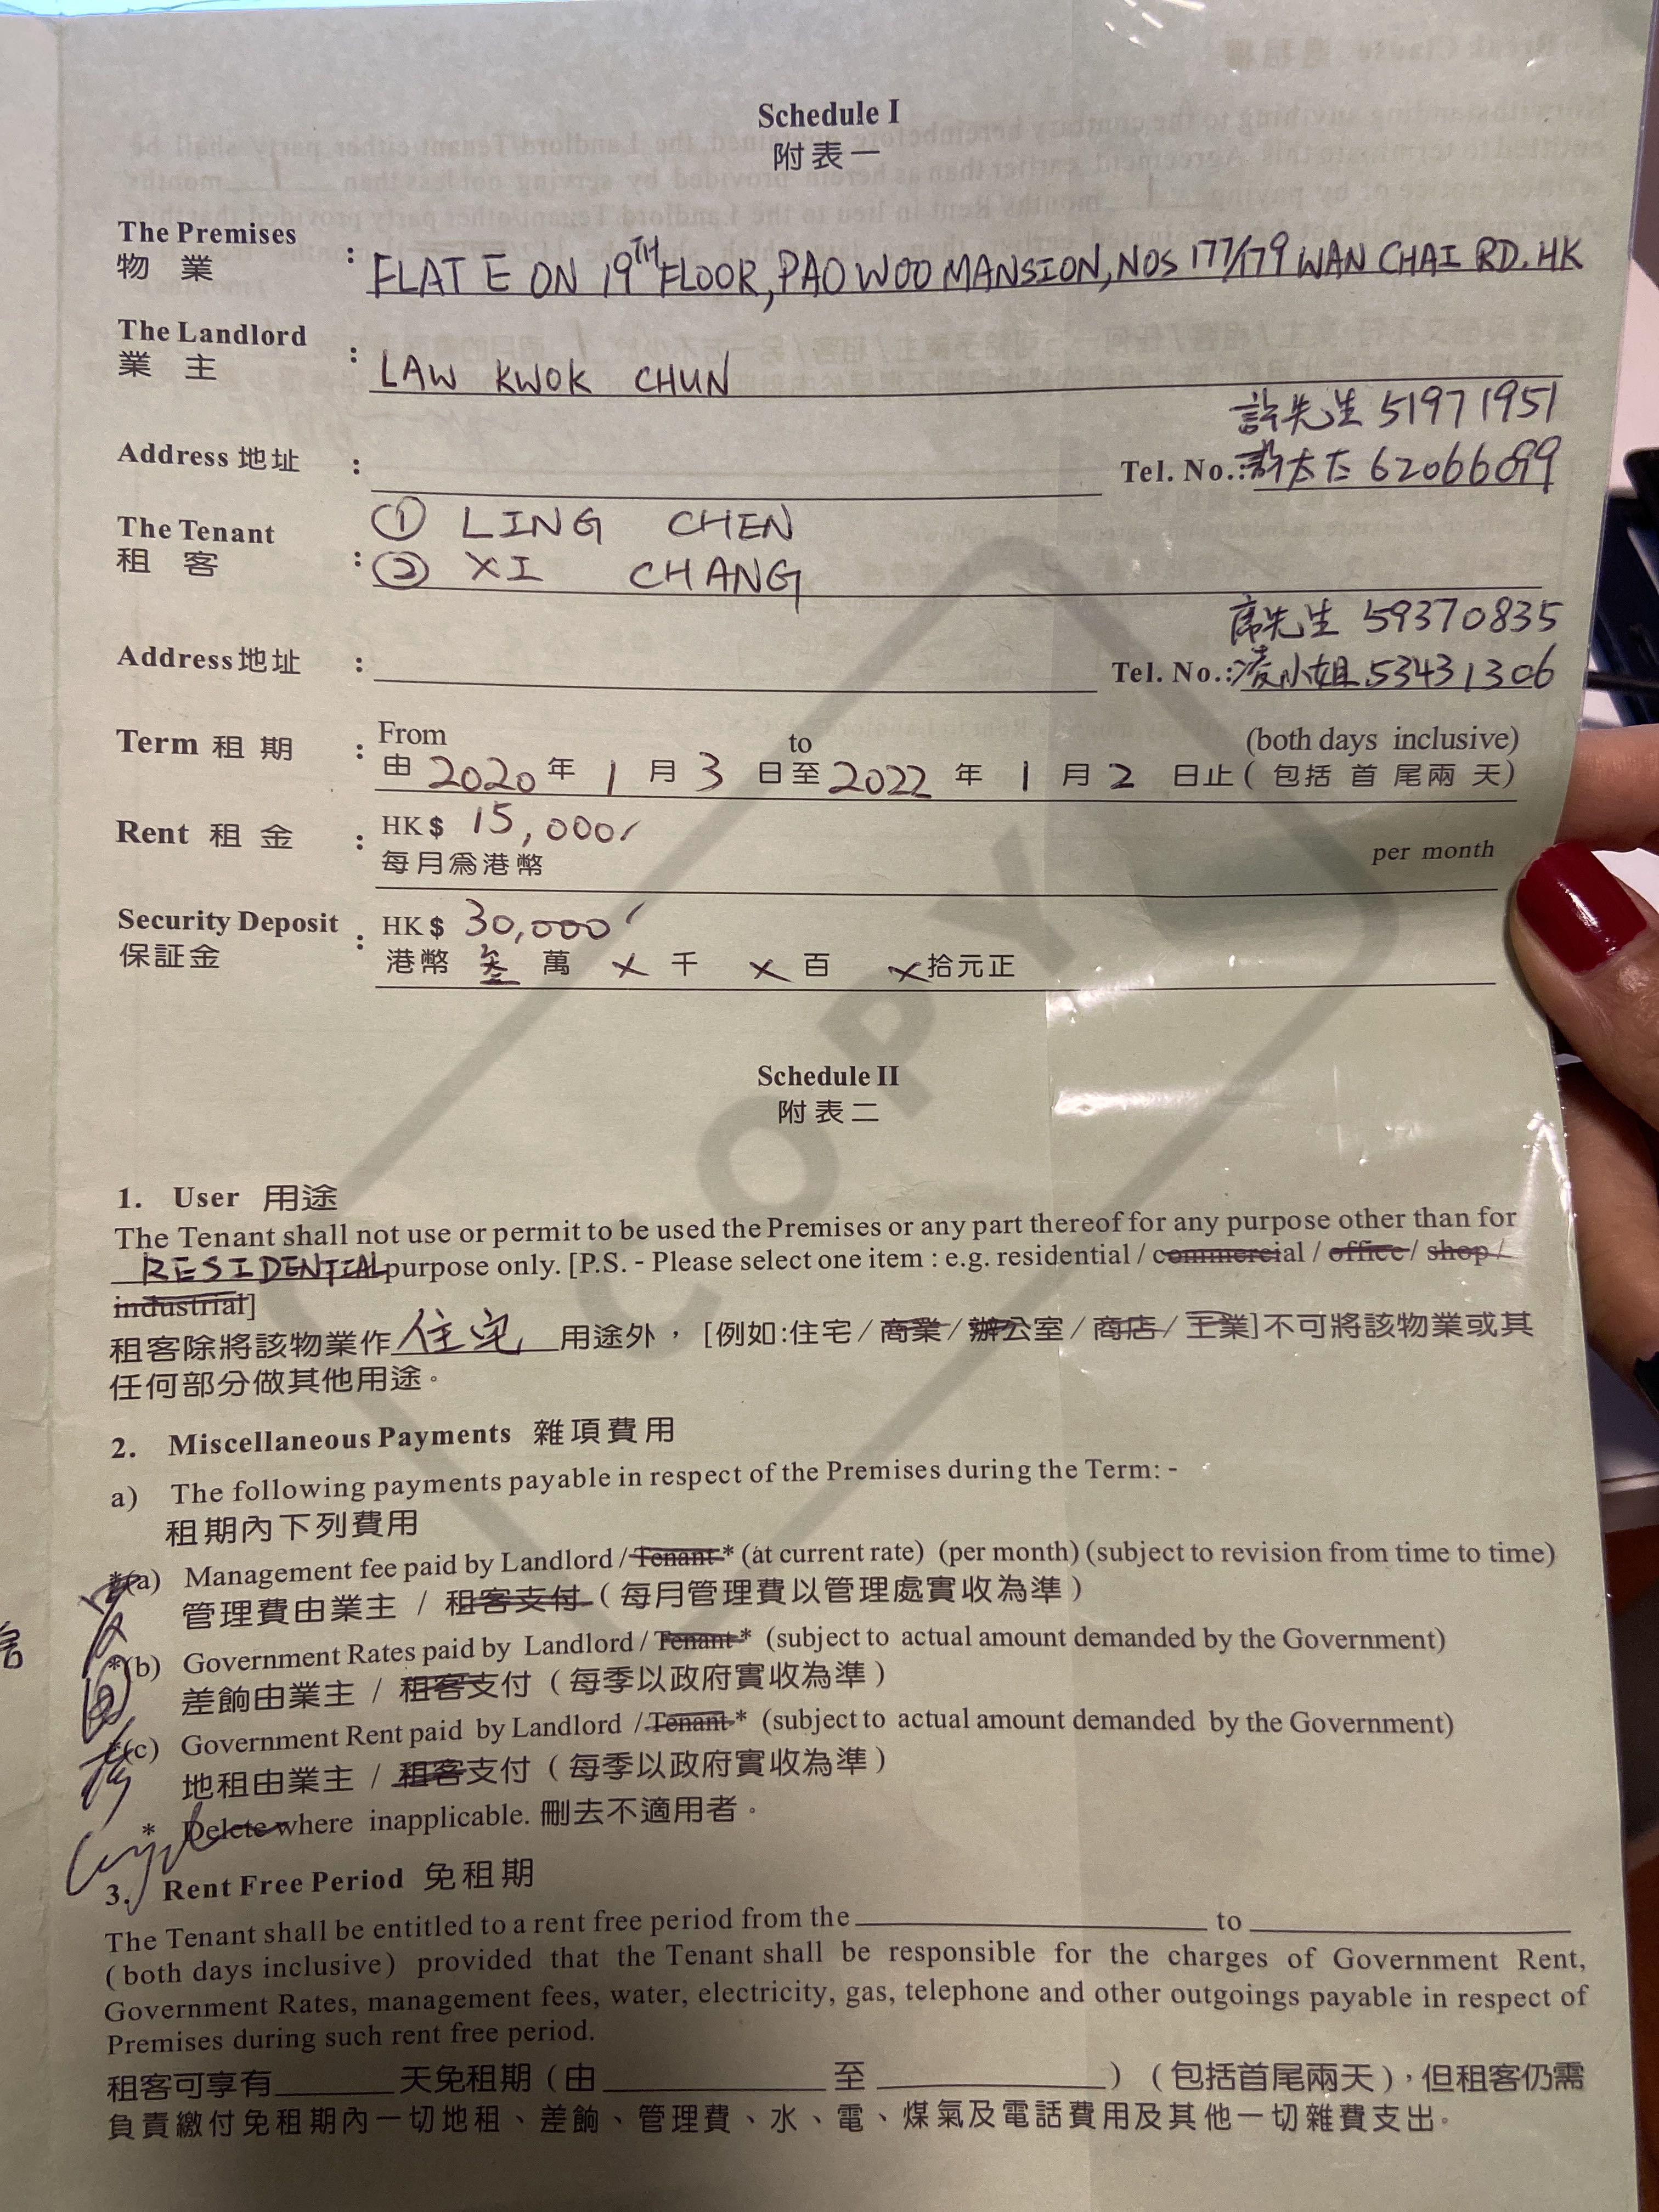 Schedule I
附表一
The Premises
物 業 : FLAT E ON 19TH FLOOR, PAO WOO MANSION, NOS 177/179 WAN CHAI RD. HK
The Landlord
業 主 : LAW KWOK CHUN
許先生 51971951
Address 地址 : Tel. No.: 許太太 62066099
The Tenant ① LING CHEN
租 客 : ② XI CHANG
席先生 59370835
Address 地址 : Tel. No.: 凌小姐 53431306
From to (both days inclusive)
Term 租 期 : 由 2020 年 1 月 3 日至 2022 年 1 月 2 日止 ( 包括 首 尾兩 天)
Rent 租 金 : HK$ 15,000/ per month
每月為港幣
Security Deposit : HK$ 30,000/
保証金 港幣 叁 萬 × 千 × 百 × 拾元正
COPY
Schedule II
附表二
1. User 用途
The Tenant shall not use or permit to be used the Premises or any part thereof for any purpose other than for
RESIDENTIAL purpose only. [P.S. - Please select one item : e.g. residential / commercial / office / shop /
industrial]
租客除將該物業作 住宅 用途外， [例如:住宅 / 商業 / 辦公室 / 商店 / 工業]不可將該物業或其
任何部分做其他用途。
2. Miscellaneous Payments 雜項費用
a) The following payments payable in respect of the Premises during the Term: -
租期內下列費用
*(a) Management fee paid by Landlord / Tenant * (at current rate) (per month) (subject to revision from time to time)
管理費由業主 / 租客支付 ( 每月管理費以管理處實收為準 )
*(b) Government Rates paid by Landlord / Tenant * (subject to actual amount demanded by the Government)
差餉由業主 / 租客支付 ( 每季以政府實收為準 )
*(c) Government Rent paid by Landlord / Tenant * (subject to actual amount demanded by the Government)
地租由業主 / 租客支付 ( 每季以政府實收為準 )
* Delete where inapplicable. 刪去不適用者。
3. Rent Free Period 免租期
The Tenant shall be entitled to a rent free period from the to
(both days inclusive) provided that the Tenant shall be responsible for the charges of Government Rent,
Government Rates, management fees, water, electricity, gas, telephone and other outgoings payable in respect of
Premises during such rent free period.
租客可享有 天免租期 ( 由 至 ) ( 包括首尾兩天 )，但租客仍需
負責繳付免租期內一切地租、差餉、管理費、水、電、煤氣及電話費用及其他一切雜費支出。